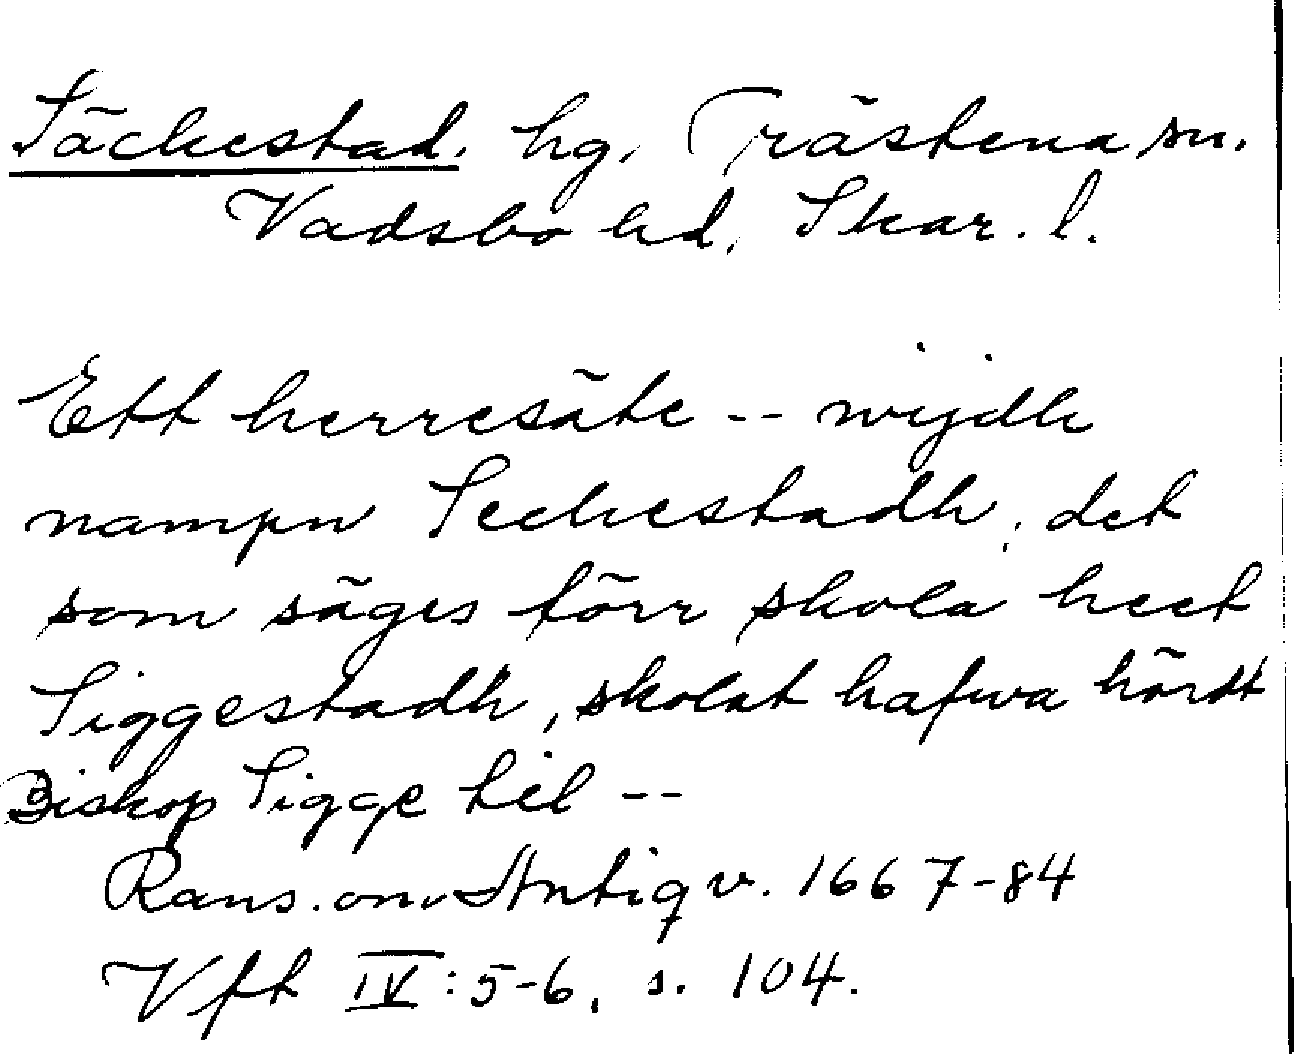 Säckestad. hg. Trästena sn.
Vadsbo hd. Skar. l.
Ett herresäte -- wijdh
nampn Seckestadh, det
som säges förr skola heet
Siggestadh, skolat hafwa hördt
Biskop Sigge til --
Rans. om Antiqv. 1667-84
Vft IV:5-6, s. 104.